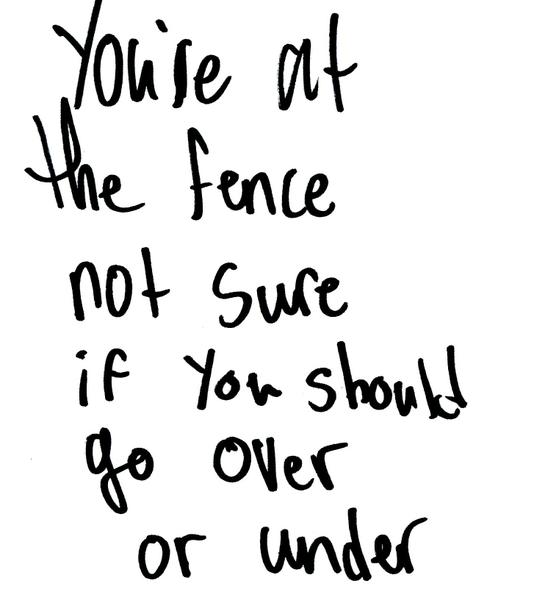 You're at
the fence
not sure
if you should
go over
or under